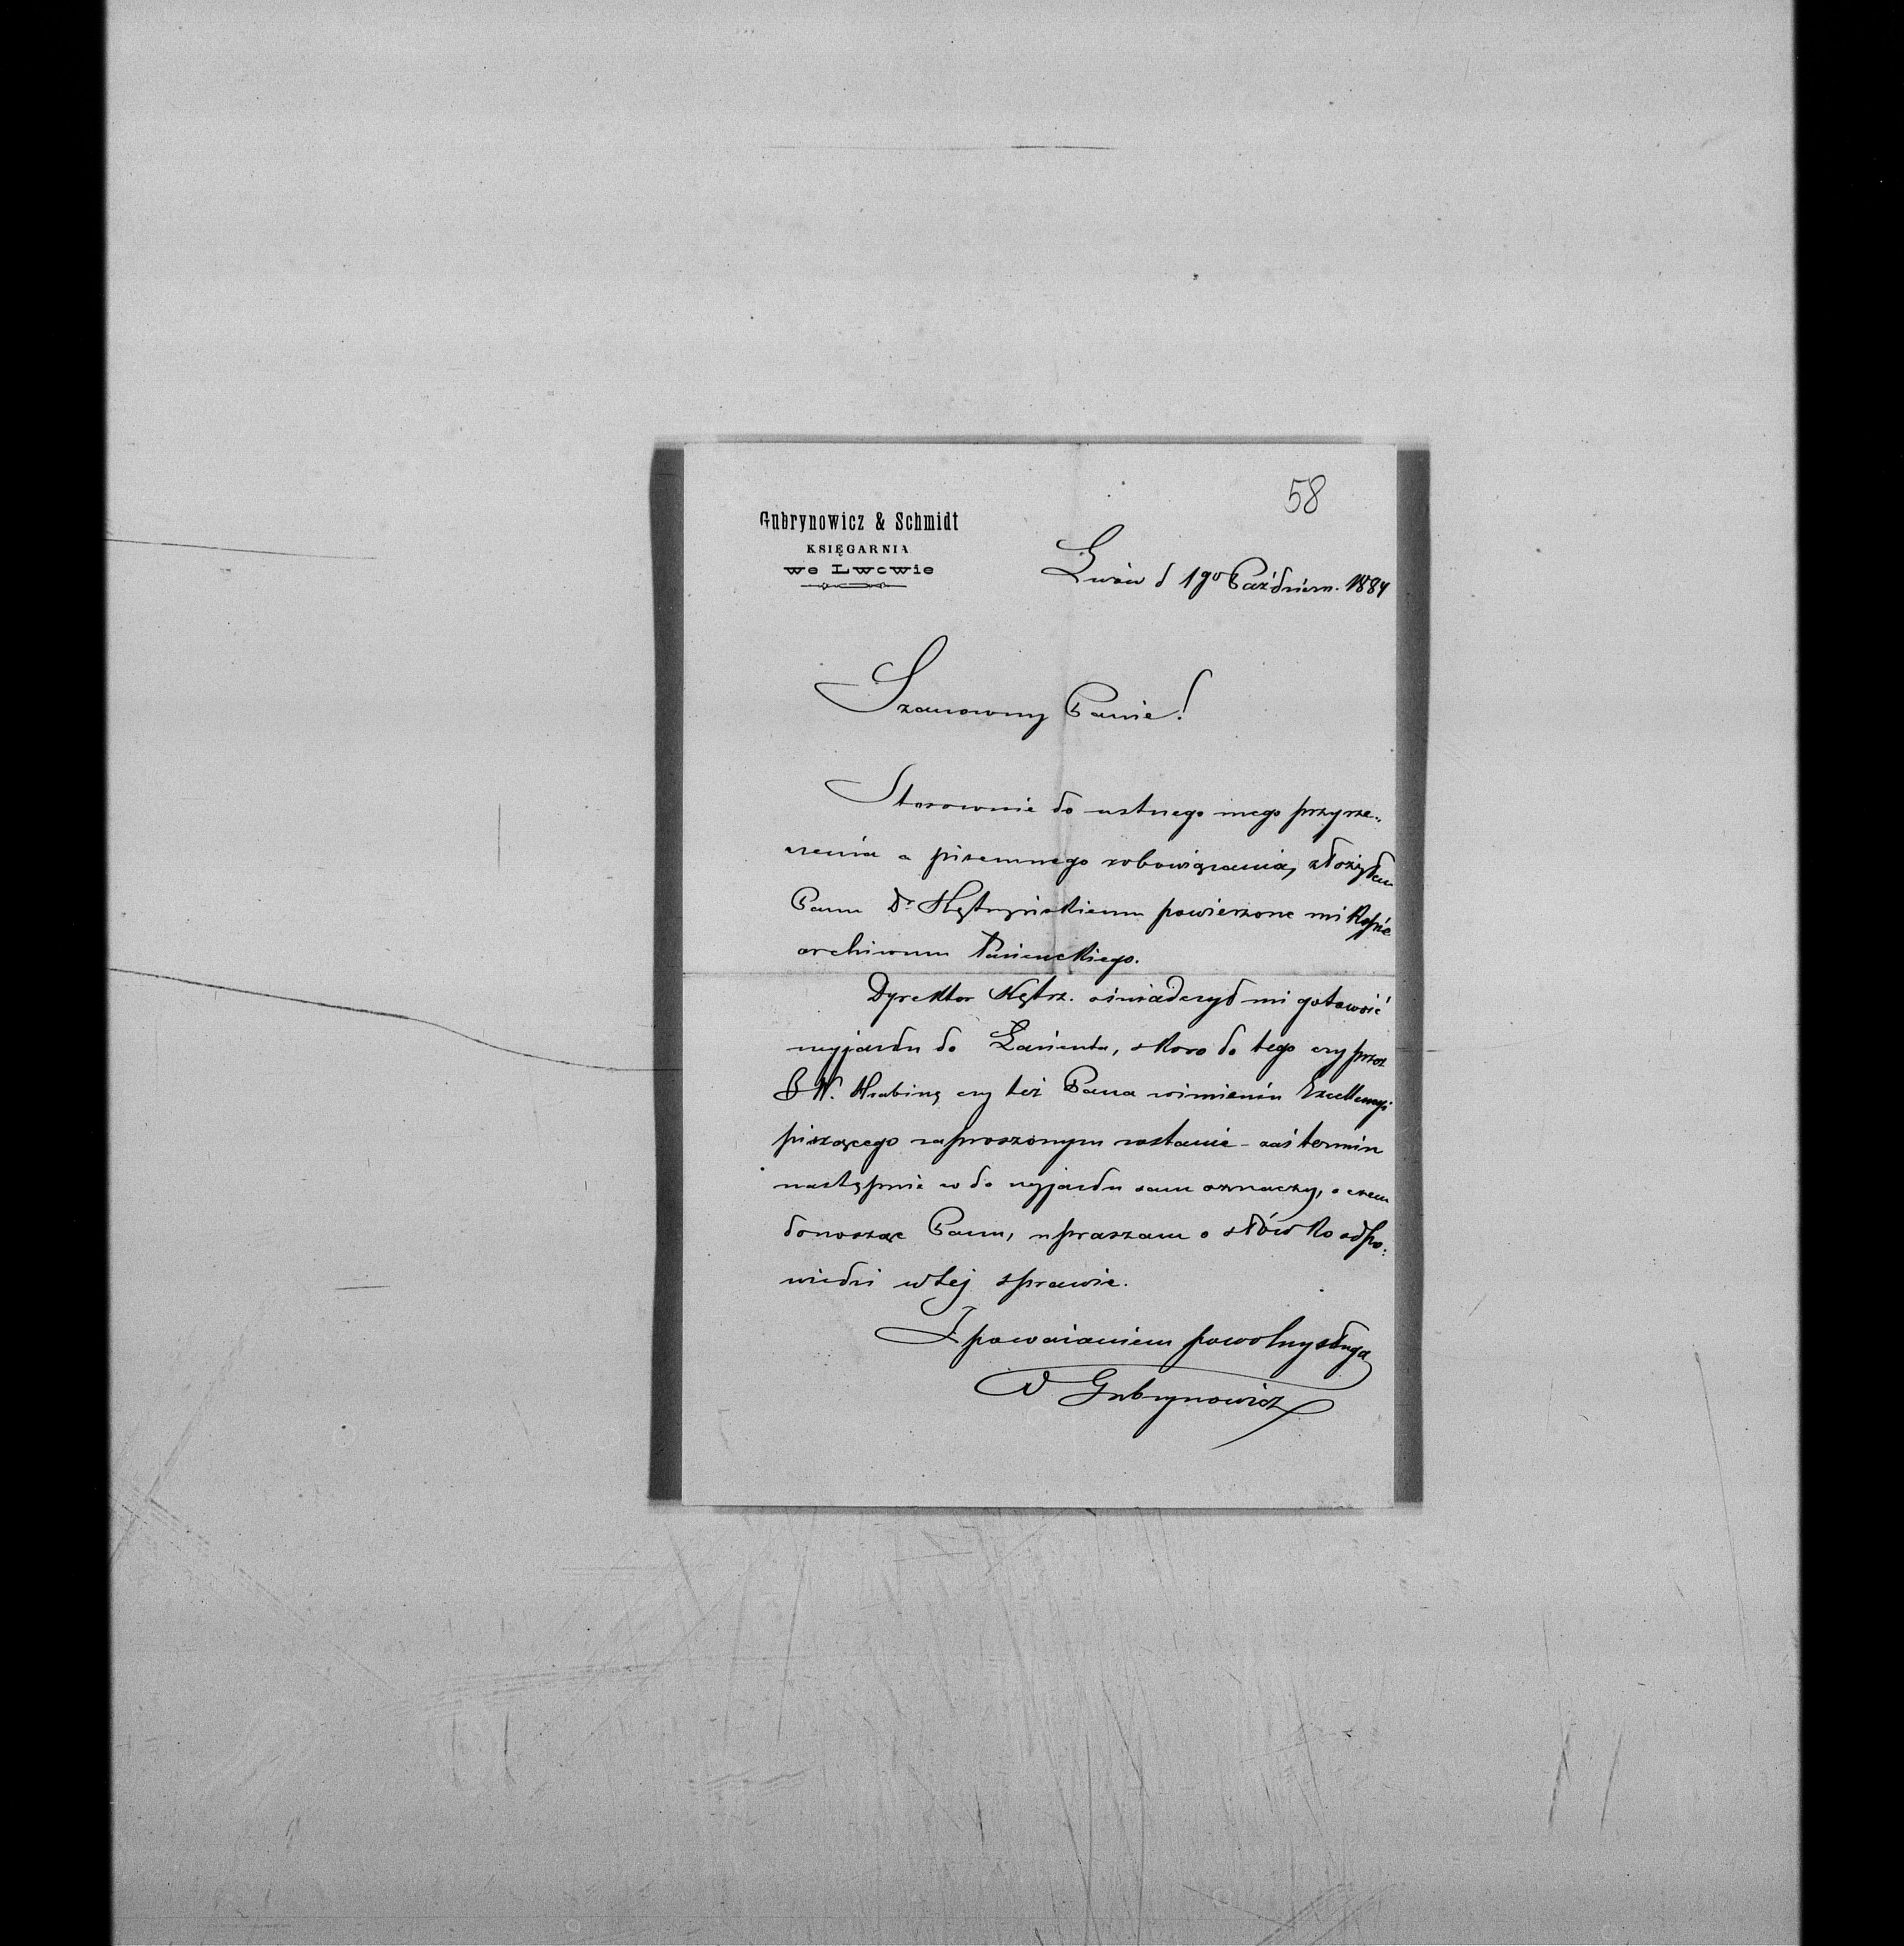 58
Gubrynowicz & Schmidt
KSIĘGARNIA
we Lwowie
Lwów d 1go Paździem. 1884
Szanowny Panie!
Stosownie do ustnego mego przyrze-
czenia a pisemnego zobowiązania, złożyłem
Panu Dr Kętrzyńskiemu powierzone mi kopie
archiwum
Dyrektor Kętrz. oświadczył mi gotowość
wyjazdu do skoro do tego czy przez
J W. Hrabinę czy też Pana wimieniu Excellencyi
piszącego zaproszonym zostanie - zaś termin
następnie do wyjazdu sam oznaczy, o czem
donosząc Panu, upraszam o słówko odpo-
wiedzi wtej sprawie.
Z poważaniem powolny sługa
W Gubrynowicz